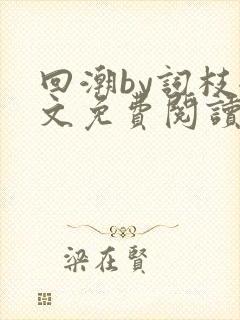 回潮by詞枝
文免費閱讀
梁在賢